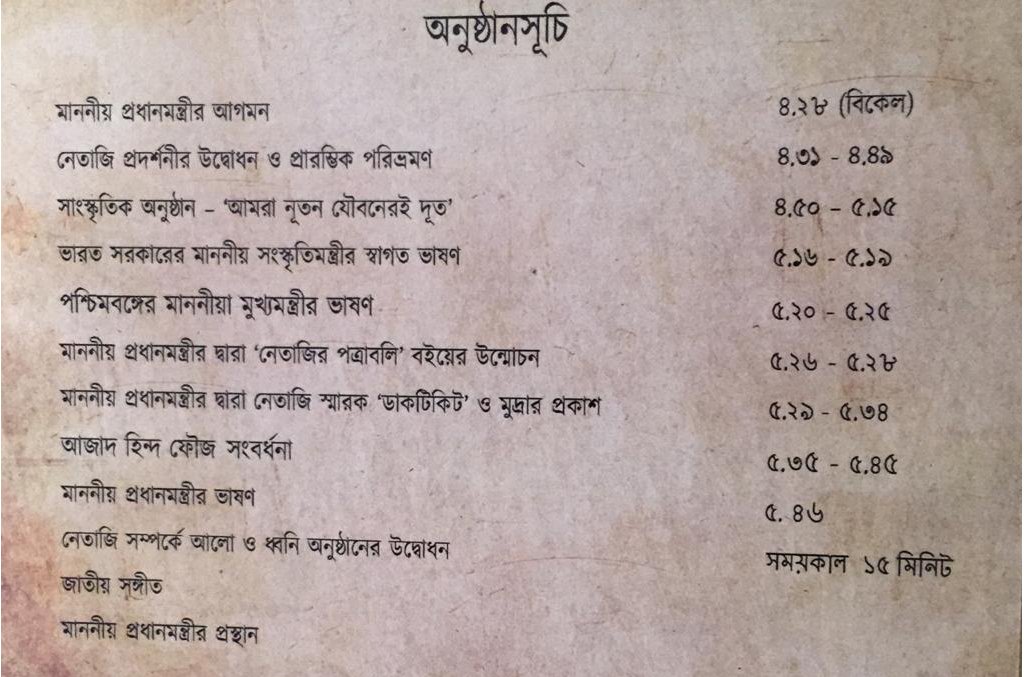 অনুষ্ঠানসূচি
মাননীয় প্রধানমন্ত্রীর আগমন ৪.২৮ (বিকেল)
নেতাজি প্রদর্শনীর উদ্বোধন ও প্রারম্ভিক পরিভ্রমণ ৪.৩১ - ৪.৪৯
সাংস্কৃতিক অনুষ্ঠান – 'আমরা নূতন যৌবনেরই দূত' ৪.৫০ – ৫.১৫
ভারত সরকারের মাননীয় সংস্কৃতিমন্ত্রীর স্বাগত ভাষণ ৫.১৬ - ৫.১৯
পশ্চিমবঙ্গের মাননীয়া মুখ্যমন্ত্রীর ভাষণ ৫.২০ - ৫.২৫
মাননীয় প্রধানমন্ত্রীর দ্বারা 'নেতাজির পত্রাবলি' বইয়ের উন্মোচন ৫.২৬ - ৫.২৮
মাননীয় প্রধানমন্ত্রীর দ্বারা নেতাজি স্মারক 'ডাকটিকিট' ও মুদ্রার প্রকাশ ৫.২৯ - ৫.৩৪
আজাদ হিন্দ ফৌজ সংবর্ধনা ৫.৩৫ - ৫.৪৫
মাননীয় প্রধানমন্ত্রীর ভাষণ ৫. ৪৬
নেতাজি সম্পর্কে আলো ও ধ্বনি অনুষ্ঠানের উদ্বোধন সময়কাল ১৫ মিনিট
জাতীয় সঙ্গীত
মাননীয় প্রধানমন্ত্রীর প্রস্থান